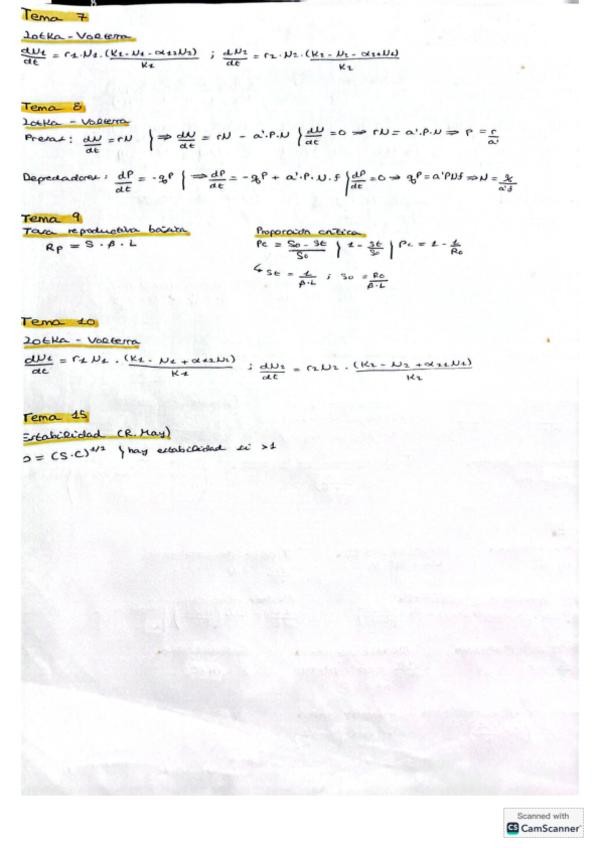 Tema 7
Lotka - Volterra
dN1/dt = r1·N1·(K1 - N1 - α12N2)/K1 ; dN2/dt = r2·N2·(K2 - N2 - α21N1)/K2
Tema 8
Lotka - Volterra
Presas: dN/dt = rN } ⇒ dN/dt = rN - a'·P·N } dN/dt = 0 ⇒ rN = a'·P·N ⇒ P = r/a'
Depredadores: dP/dt = -qP } ⇒ dP/dt = -qP + a'·P·N·f } dP/dt = 0 ⇒ qP = a'PNf ⇒ N = q/a'f
Tema 9
Tasa reproductiva básica
Proporción crítica
Rp = S · β · L
Pc = So - St/So } 1 - St/So } Pc = 1 - 1/Ro
↳ St = 1/β·L ; So = Ro/β·L
Tema 10
Lotka - Volterra
dN1/dt = r1N1 · (K1 - N1 + α12N2)/K1 ; dN2/dt = r2N2 · (K2 - N2 + α21N1)/K2
Tema 15
Estabilidad (R. May)
= (S·C)^1/2 } hay estabilidad si >1
Scanned with
CS CamScanner